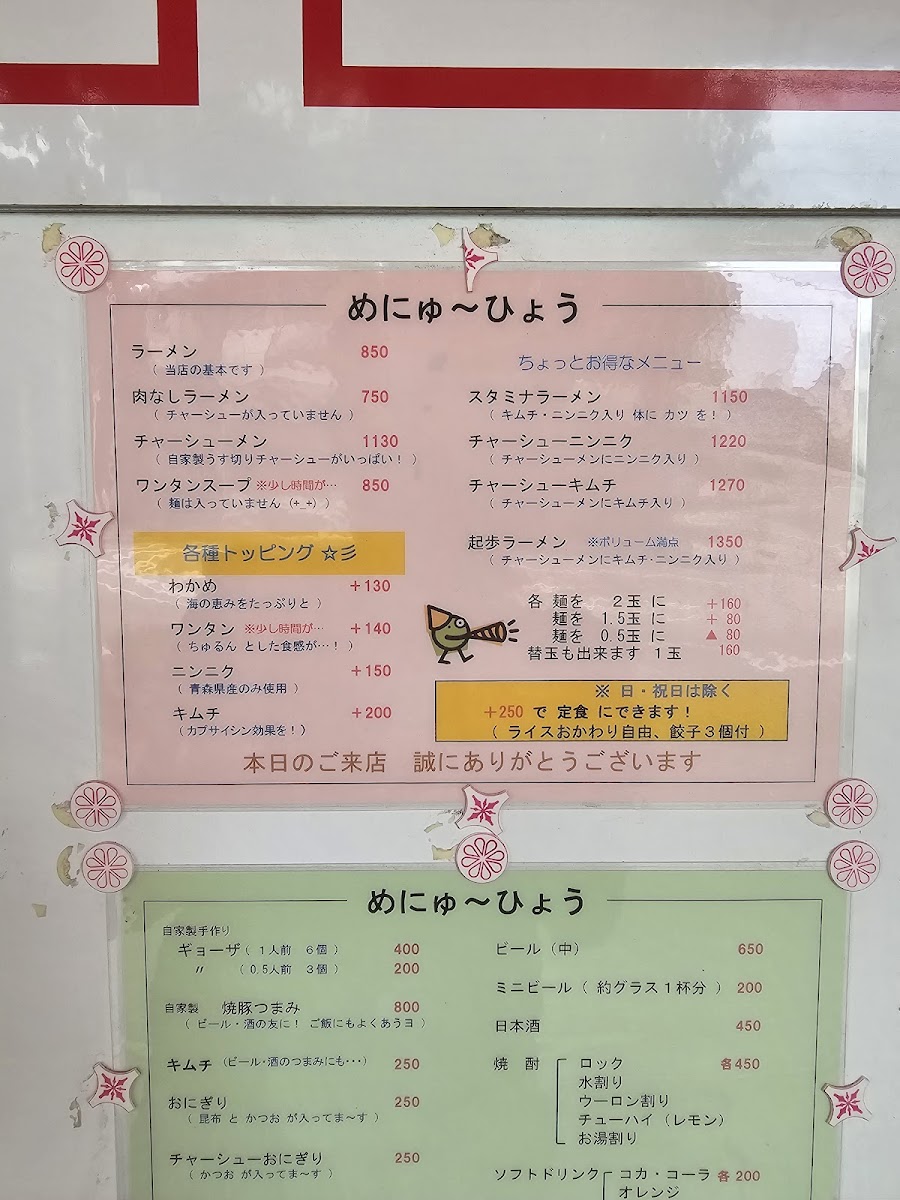 めにゅ～ひょう
ラーメン 850
（ 当店の基本です ）
肉なしラーメン 750
（ チャーシューが入っていません ）
チャーシューメン 1130
（ 自家製うす切りチャーシューがいっぱい！ ）
ワンタンスープ ※少し時間が… 850
（ 麺は入っていません (+_+) ）
各種トッピング ☆彡
わかめ ＋130
（ 海の恵みをたっぷりと ）
ワンタン ※少し時間が… ＋140
（ ちゅるん とした食感が…！ ）
ニンニク ＋150
（ 青森県産のみ使用 ）
キムチ ＋200
（ カプサイシン効果を！）
ちょっとお得なメニュー
スタミナラーメン 1150
（ キムチ・ニンニク入り 体に カツ を！ ）
チャーシューニンニク 1220
（ チャーシューメンにニンニク入り ）
チャーシューキムチ 1270
（ チャーシューメンにキムチ入り ）
起歩ラーメン ※ボリューム満点 1350
（ チャーシューメンにキムチ・ニンニク入り ）
各 麺を 2玉 に ＋160
麺を 1.5玉 に ＋ 80
麺を 0.5玉 に ▲ 80
替玉も出来ます 1玉 160
※ 日・祝日は除く
＋250 で 定食 にできます！
（ ライスおかわり自由、餃子３個付 ）
本日のご来店 誠にありがとうございます
めにゅ～ひょう
自家製手作り
ギョーザ（ 1人前 6個 ） 400
〃 （ 0.5人前 3個 ） 200
自家製 焼豚つまみ 800
（ ビール・酒の友に！ ご飯にもよくあうヨ ）
キムチ （ビール・酒のつまみにも・・・） 250
おにぎり 250
（ 昆布 と かつお が入ってま～す ）
チャーシューおにぎり 250
（ かつお が入ってま～す ）
ビール（中） 650
ミニビール（ 約グラス１杯分 ） 200
日本酒 450
焼 酎 ロック 各450
水割り
ウーロン割り
チューハイ（レモン）
お湯割り
ソフトドリンク コカ・コーラ 各 200
オレンジ